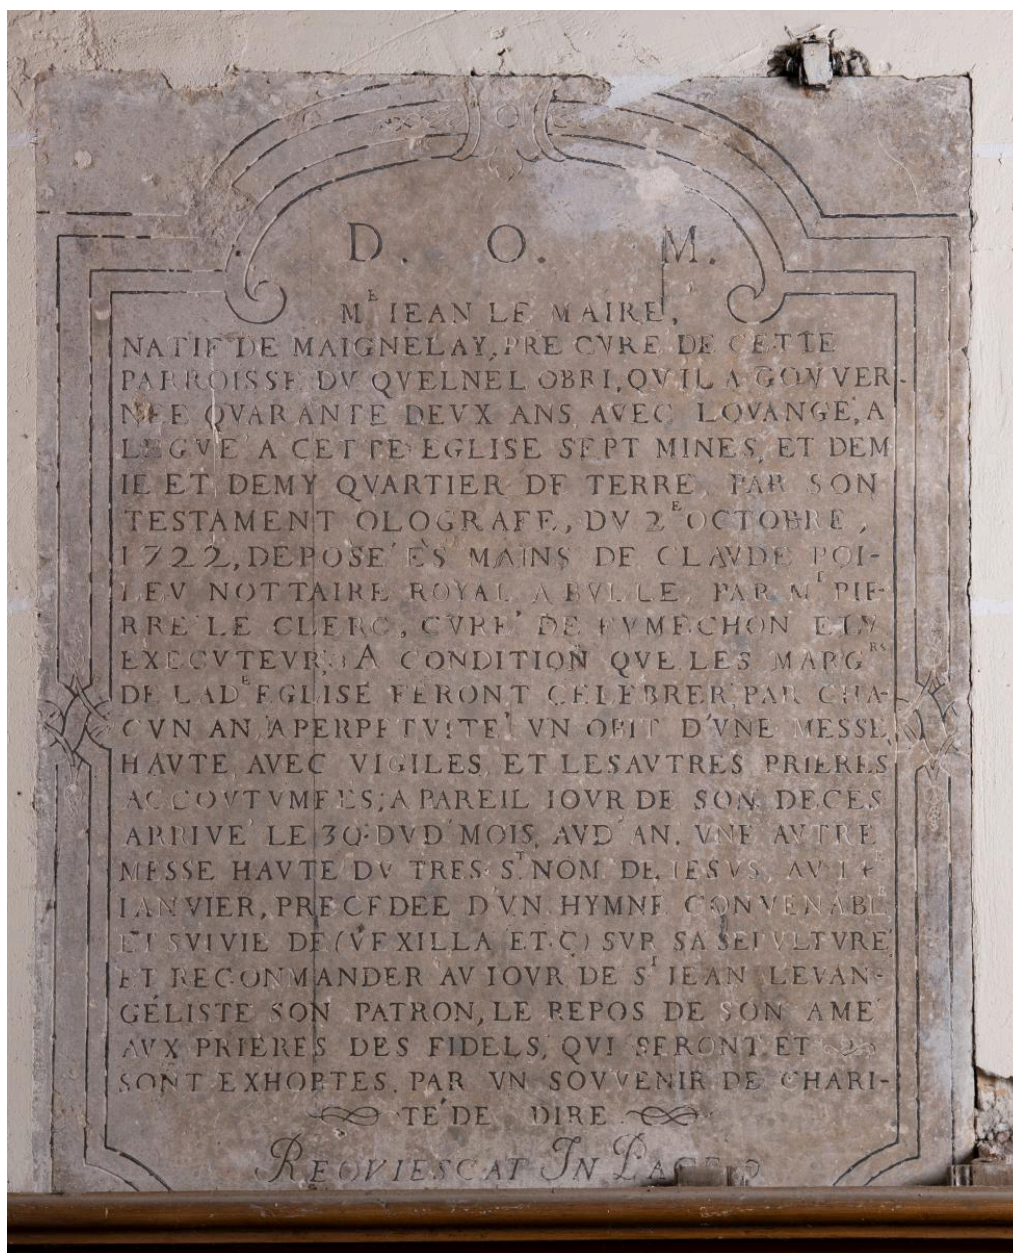 D. O. M.
M^E IEAN LE MAIRE,
NATIF DE MAIGNELAY, PRE CVRE DE CETTE
PARROISSE DV QVELNEL OBRI, QV IL A GOVVER-
NÉE QVARANTE DEVX ANS AVEC LOVANGE, A
LEGVÉ A CETTE EGLISE SEPT MINES, ET DEM
IE ET DEMY QVARTIER DE TERRE, PAR SON
TESTAMENT OLOGRAFE, DV 2^E OCTOBRE,
1722, DEPOSÉ ÈS MAINS DE CLAVDE POI-
LEV NOTTAIRE ROYAL A BVLLE, PAR M^E PIE-
RRE LE CLERC, CVRÉ DE FVMECHON
EXECVTEVR; A CONDITION QVE LES MARG^RS
DE LAD^E EGLISE FERONT CELEBRER PAR CHA-
CVN AN A PERPETVITÉ VN OBIT D'VNE MESSE
HAVTE AVEC VIGILES, ET LES AVTRES PRIERES
ACCOVTVMEES; A PAREIL IOVR DE SON DECES
ARRIVÉ LE 30. DVD' MOIS, AVD' AN. VNE AVTRE
MESSE HAVTE DV TRES S^T NOM DE IESVS, AV 1^ER
IANVIER, PRECEDEE D'VN HYMNE CONVENABLE
ET SVIVIE DE (VEXILLA ET.C) SVR SA SEPVLTVRE
ET RECONMANDER AV IOVR DE S^T IEAN LEVAN-
GÉLISTE SON PATRON, LE REPOS DE SON AME
AVX PRIERES DES FIDELS, QVI SERONT ET
SONT EXHORTES, PAR VN SOVVENIR DE CHARI-
TÉ DE DIRE
REQVIESCAT IN PACE